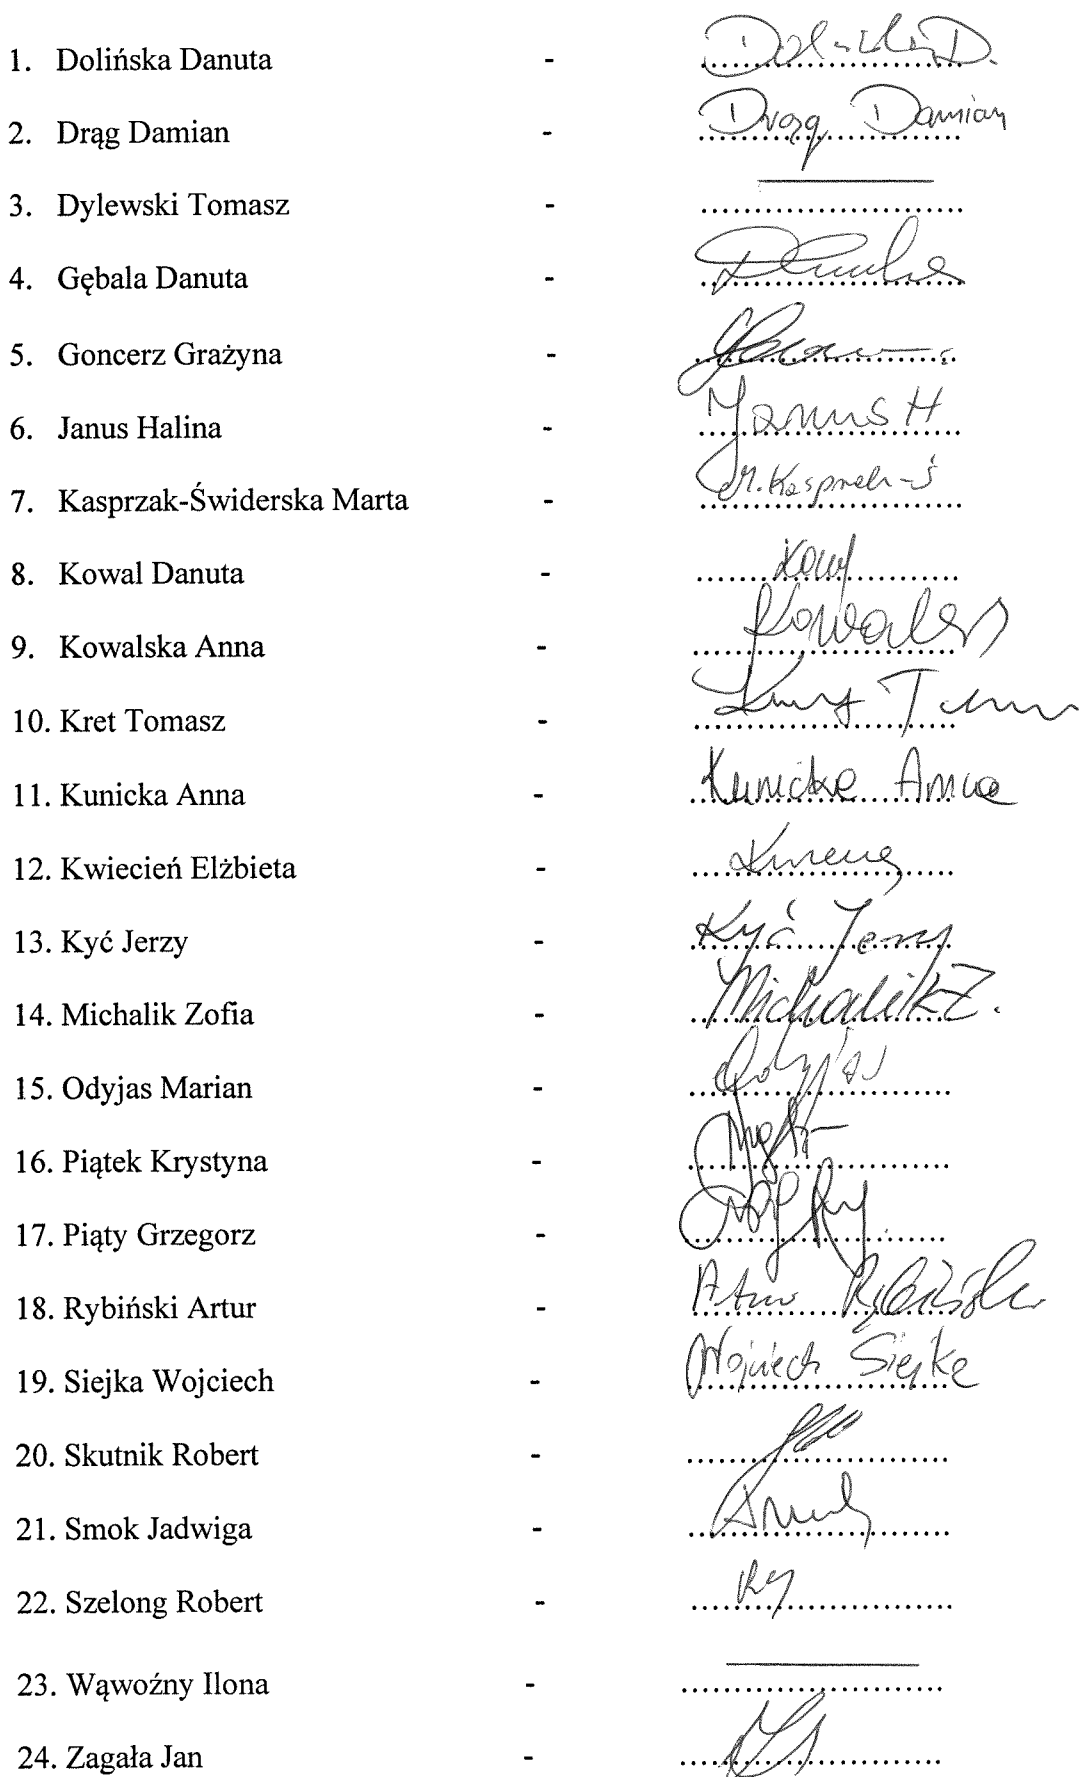 1. Dolińska Danuta - Dolińska D.
2. Drąg Damian - Drąg Damian
3. Dylewski Tomasz -
4. Gębala Danuta -
5. Goncerz Grażyna -
6. Janus Halina - Janus H
7. Kasprzak-Świderska Marta - M. Kasprzak-Ś
8. Kowal Danuta - Kowal
9. Kowalska Anna - Kowalska
10. Kret Tomasz -
11. Kunicka Anna - Kunicka Anna
12. Kwiecień Elżbieta -
13. Kyć Jerzy - Kyć Jerzy
14. Michalik Zofia - Michalik Z.
15. Odyjas Marian - Odyjas
16. Piątek Krystyna -
17. Piąty Grzegorz -
18. Rybiński Artur - Artur Rybiński
19. Siejka Wojciech - Wojciech Siejka
20. Skutnik Robert -
21. Smok Jadwiga -
22. Szelong Robert -
23. Wąwoźny Ilona -
24. Zagała Jan -